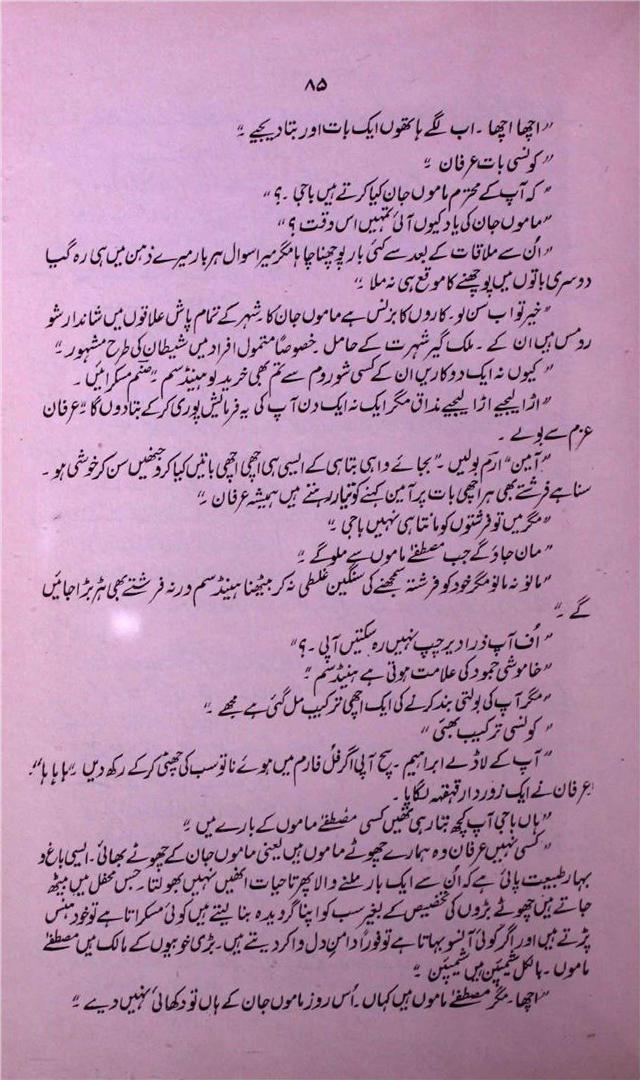 ۸۵
"اچھا اچھا۔ اب لگے ہاتھوں ایک بات اور بتا دیجیے۔"
"کونسی بات عرفان۔"
"کہ آپ کے محترم ماموں جان کیا کرتے ہیں باجی۔؟"
"ماموں جان کی یاد کیوں آئی تمہیں اس وقت؟"
"اُن سے ملاقات کے بعد سے کئی بار پوچھنا چاہا مگر میرا سوال ہر بار میرے ذہن میں ہی رہ گیا
دوسری باتوں میں پوچھنے کا موقع ہی نہ ملا۔"
"خیر تو اب سن لو۔ کاروں کا بزنس ہے ماموں جان کا۔ شہر کے تمام پاش علاقوں میں شاندار شو
رومس ہیں ان کے۔ ملک گیر شہرت کے حامل۔ خصوصاً متمول افراد میں شیطان کی طرح مشہور۔"
"کیوں نہ ایک دو کاریں ان کے کسی شوروم سے تم بھی خرید لو ہینڈسم۔" صنم مسکرائیں۔
"اڑا لیجیے اڑا لیجیے مذاق مگر ایک نہ ایک دن آپ کی یہ فرمائش پوری کر کے بتادوں گا" عرفان
عزم سے بولے۔
"آمین" ارم بولیں۔ "بجائے واہی تباہی کے ایسی ہی اچھی اچھی باتیں کیا کرو جنھیں سن کر خوشی ہو۔
سنا ہے فرشتے بھی ہر اچھی بات پر آمین کہنے کو تیار رہتے ہیں ہمیشہ عرفان۔"
"مگر میں تو فرشتوں کو مانتا ہی نہیں باجی۔"
"مان جاؤ گے جب مصطفےٰ ماموں سے ملو گے۔"
"مانو نہ مانو مگر خود کو فرشتہ سمجھنے کی سنگین غلطی نہ کر بیٹھنا ہینڈسم ورنہ فرشتے بھی ہڑبڑا جائیں
گے۔"
"اُف آپ ذرا دیر چپ نہیں رہ سکتیں آپی۔؟"
"خاموشی جمود کی علامت ہوتی ہے ہینڈسم۔"
"مگر آپ کی بولتی بند کرنے کی ایک اچھی ترکیب مل گئی ہے مجھے۔"
"کونسی ترکیب بھئی"
"آپ کے لاڈلے ابراہیم۔ سچ آپی اگر فُل فارم میں ہوئے نا تو سب کی چھٹی کر کے رکھ دیں۔ "ہا ہا ہا"۔
عرفان نے ایک زوردار قہقہہ لگایا۔
"ہاں باجی آپ کچھ بتا رہی تھیں کسی مصطفےٰ ماموں کے بارے میں۔"
"کسی نہیں عرفان وہ ہمارے چھوٹے ماموں ہیں یعنی ماموں جان کے چھوٹے بھائی۔ ایسی باغ و
بہار طبیعت پائی ہے کہ اُن سے ایک بار ملنے والا پھر تاحیات انھیں نہیں بھولتا۔ جس محفل میں بیٹھ
جاتے ہیں چھوٹے بڑوں کی تخصیص کے بغیر سب کو اپنا گرویدہ بنا لیتے ہیں کوئی مسکراتا ہے تو خود ہنس
پڑتے ہیں اور اگر کوئی آنسو بہاتا ہے تو فوراً دامنِ دل وا کر دیتے ہیں۔ بڑی خوبیوں کے مالک ہیں مصطفےٰ
ماموں۔ بالکل شیمپئن ہیں شیمپئن۔"
"اچھا۔ مگر مصطفےٰ ماموں ہیں کہاں۔ اُس روز ماموں جان کے ہاں تو دکھائی نہیں دیے۔"